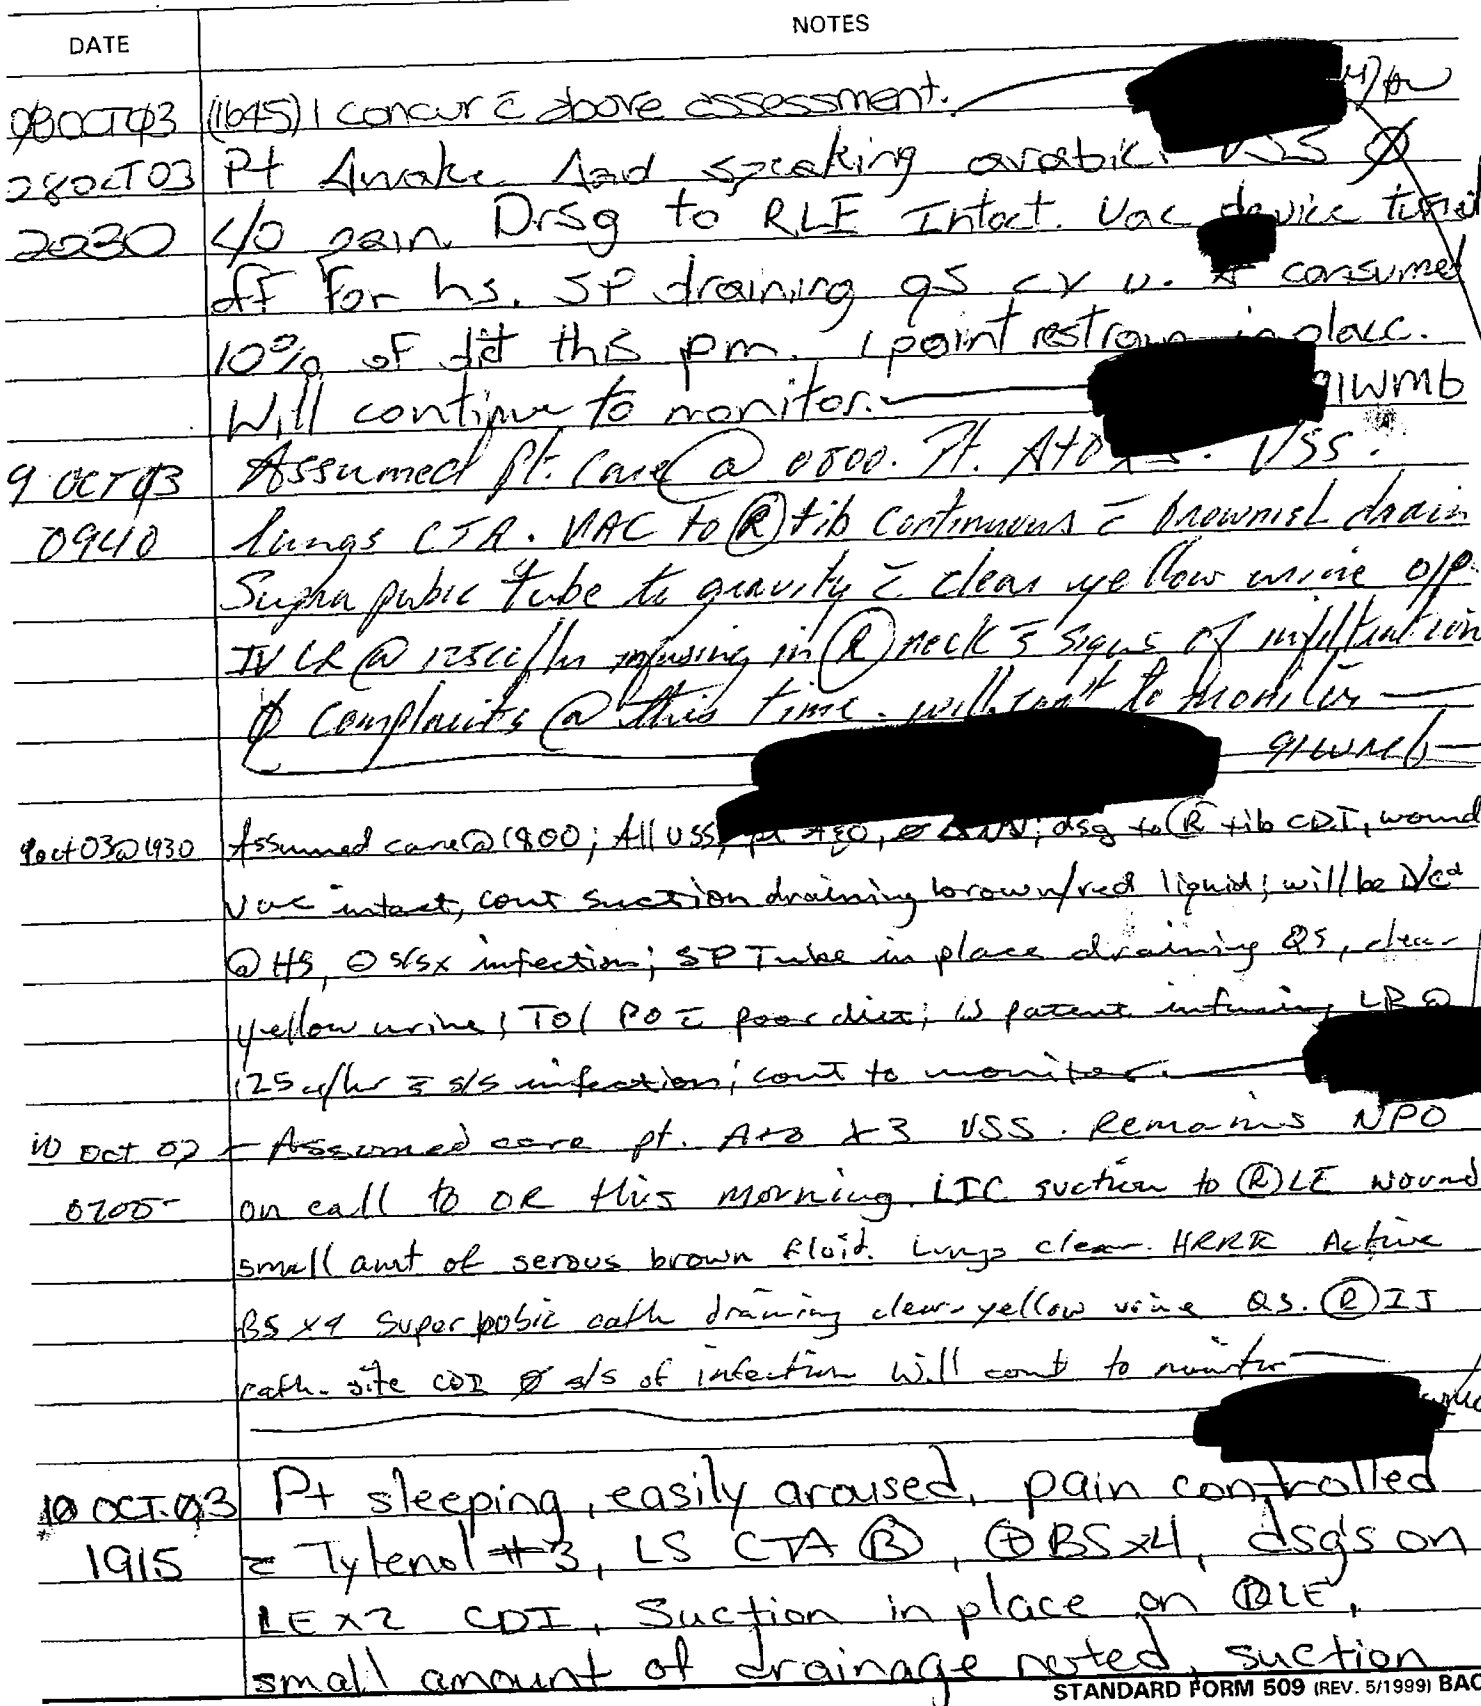 DATE NOTES
08OCT03 (1645) I concur c̄ above assessment.
28OCT03 Pt Awake And speaking arabic. VSS Ø
2030 c/o pain. Drsg to RLE Intact. Vac device turned
off For hs. SP draining qs cy u. consumed
10% of diet this pm. 1 point restrain in place.
Will continue to monitor. 91WM6
9 OCT 03 Assumed pt. Care @ 0800. Pt. A+O x3. VSS.
0940 lungs CTA. VAC to Ⓡ tib continuous c̄ brownish drain
Supra pubic tube to gravity c̄ clear yellow urine o/p.
IV LR @ 125cc/hr infusing in Ⓡ neck s̄ signs of infiltration
Ø complaints @ this time. will con't to monitor
91WM6
9oct03@1930 Assumed care @ 1800; All VSS, pt A&O, dsg to Ⓡ tib CDI, wound
vac intact, cont suction draining brown/red liquid; will be D/Cd
@ HS, ⊖ s/sx infection; SP Tube in place draining QS, clear
yellow urine; Tol PO c̄ poor diet; IV patent infusing LR @
125cc/hr s̄ s/s infection; cont to monitor.
10 Oct 03 - Assumed care pt. A+O x3 VSS. Remains NPO
0700 on call to OR this morning. LIC suction to Ⓡ LE wound
small amt of serous brown fluid. Lungs clear. HRRR Active
BS x4 Superpubic cath draining clear yellow urine QS. Ⓡ IJ
cath. site CDI Ø s/s of infection Will cont to monitor
10 OCT.03 Pt sleeping, easily aroused, pain controlled
1915 c̄ Tylenol #3, LS CTA Ⓑ, ⊕BSx4, dsg's on
LEx2 CDI, Suction in place on ⓇLE,
small amount of drainage noted, suction
STANDARD FORM 509 (REV. 5/1999) BAC